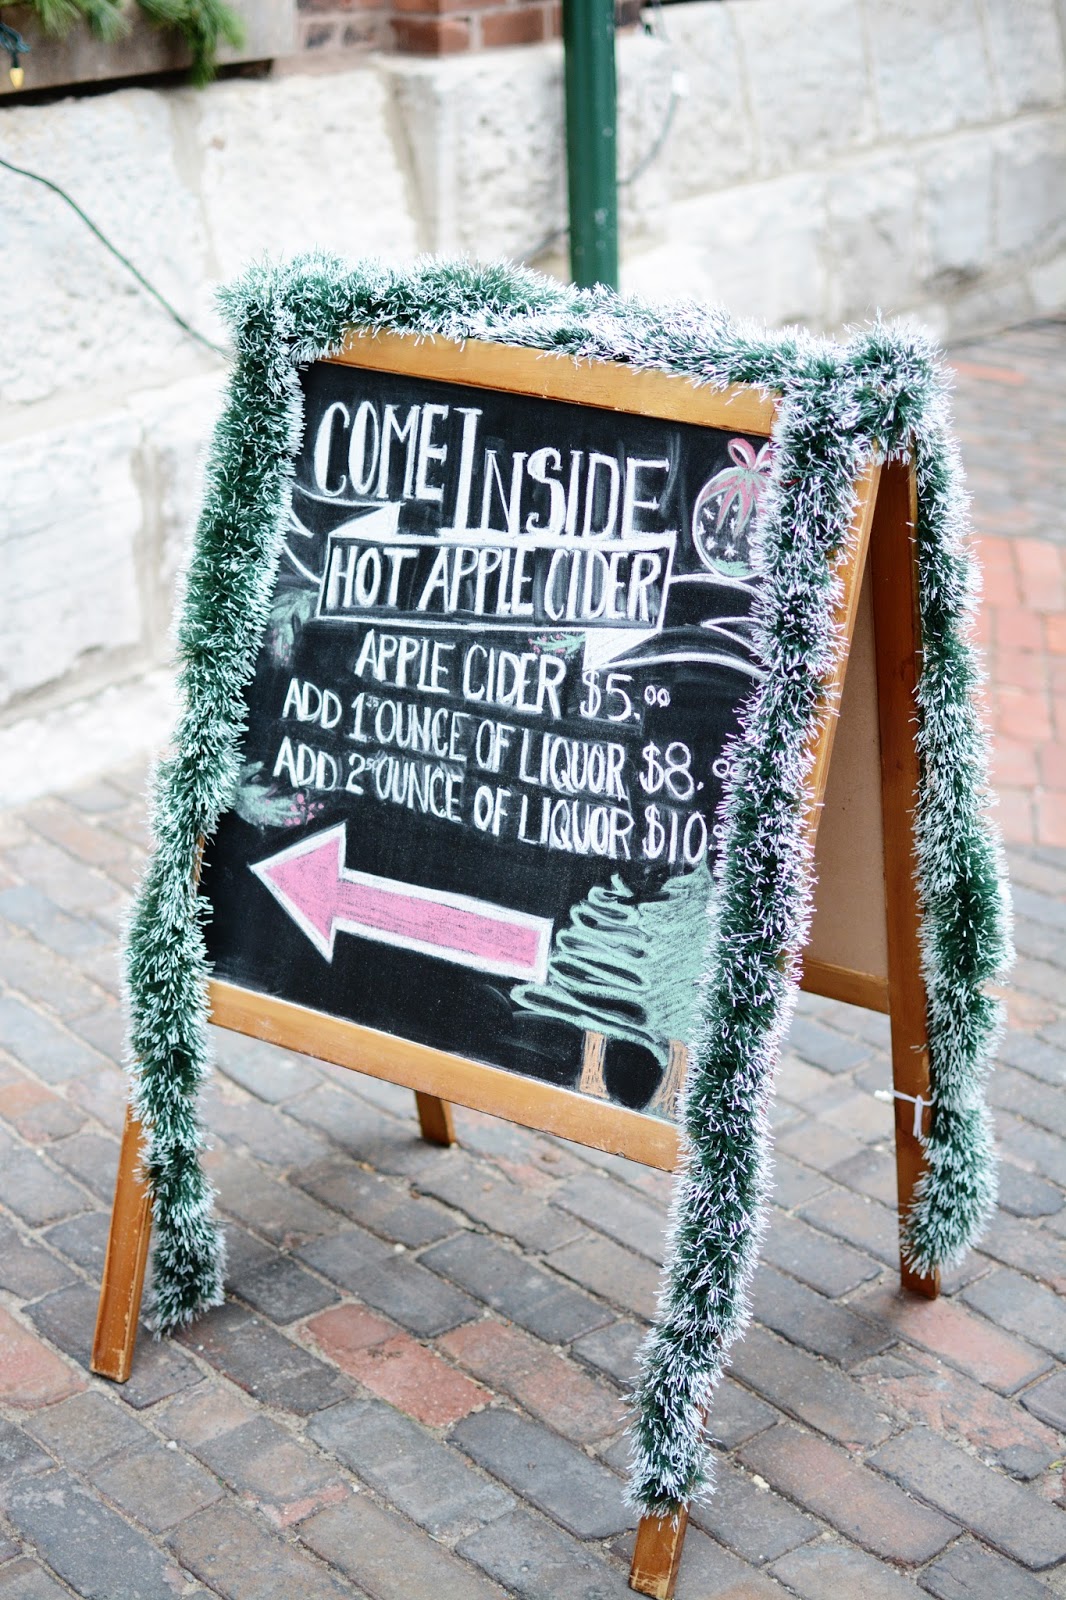 COME INSIDE
HOT APPLE CIDER
APPLE CIDER $5.00
ADD 1 OUNCE OF LIQUOR $8.
ADD 2 OUNCE OF LIQUOR $10